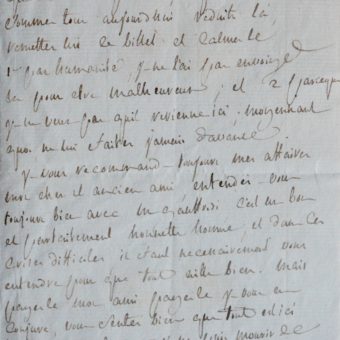 aujourdhui reduit là,
remettez lui ce billet et calmez le
1° par humanité, je ne l'ai pas envoyé
pour etre malheureux, et 2° parceque
je ne veux pas qu'il revienne ici, moyennant
quoi ne lui faites jamais d'avance
je vous recommande toujours mes affaires
mon cher et ancien ami entendés vous
toujours bien avec m c'est un bon
et parfaitement honneste homme, et dans ces
crises difficiles il faut necessairement vous
entendre pour que tout aille bien. mais
payez le mon ami payez le je vous en
conjure, vous sentez bien que tout est ici
mourir de